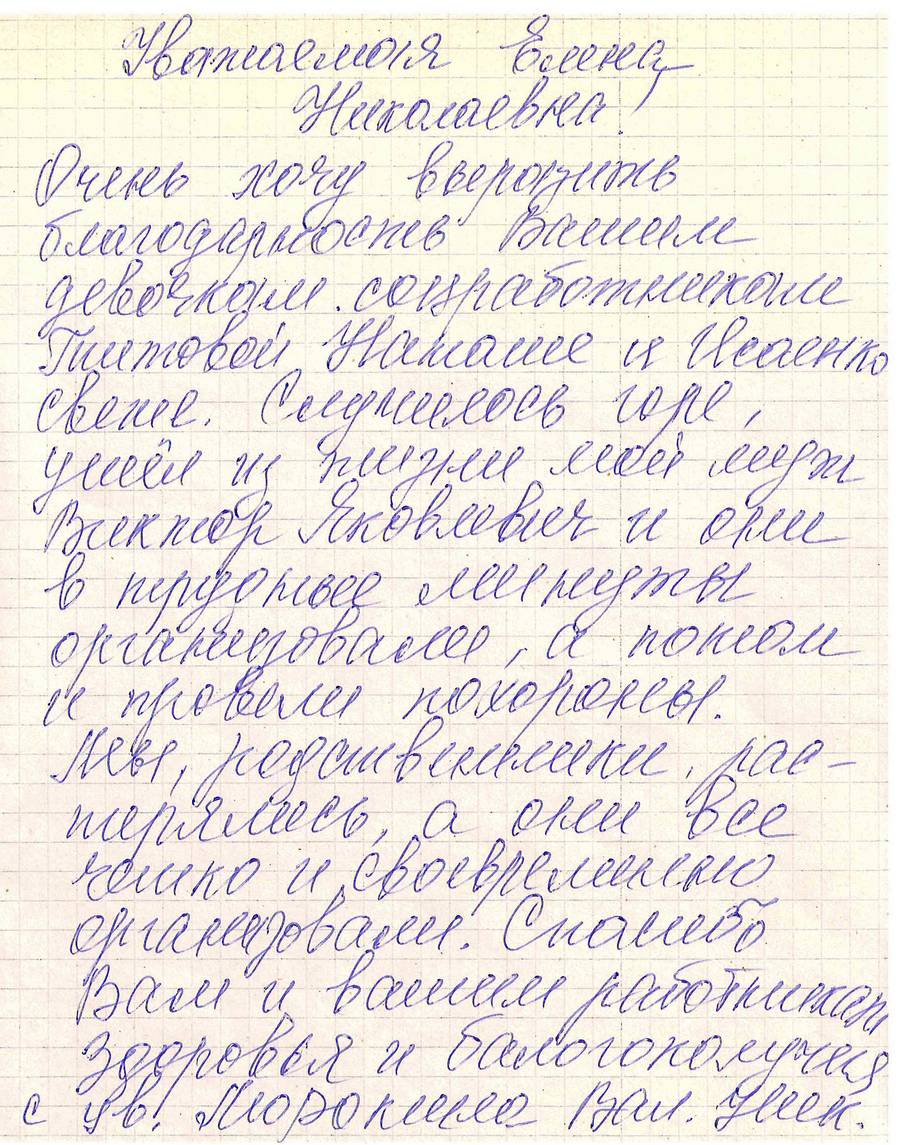 Уважаемая Елена
Николаевна!
Очень хочу выразить
благодарность Вашим
девочкам соцработникам
Титовой Наташе и Исаенко
Свете. Случилось горе,
ушёл из жизни мой муж
Виктор Яковлевич и они
в трудные минуты
организовали, а потом
и провели похороны.
Мы, родственники, рас-
терялись, а они все
четко и своевременно
организовали. Спасибо
Вам и вашим работникам
Здоровья и балогополучия
с ув. Вал.